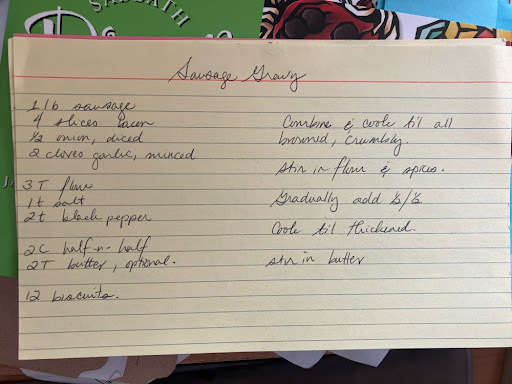 SABBATH
Sausage Gravy
1 lb sausage
4 slices bacon
½ onion, diced
2 cloves garlic, minced
3 T flour
1 t salt
2 t black pepper
2 C half-n-half
2 T butter, optional.
12 biscuits.
Combine & cook til all
browned, crumbly.
Stir in flour & spices.
Gradually add ½/½
Cook til thickened.
Stir in butter